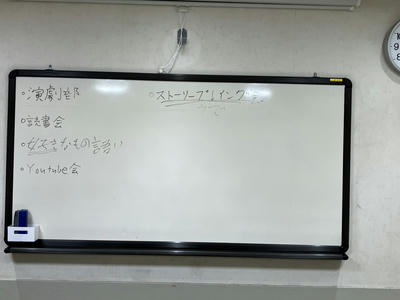 ○演劇部
○読書会
○好きなもの語り
○Youtube会
○ストーリープレイング